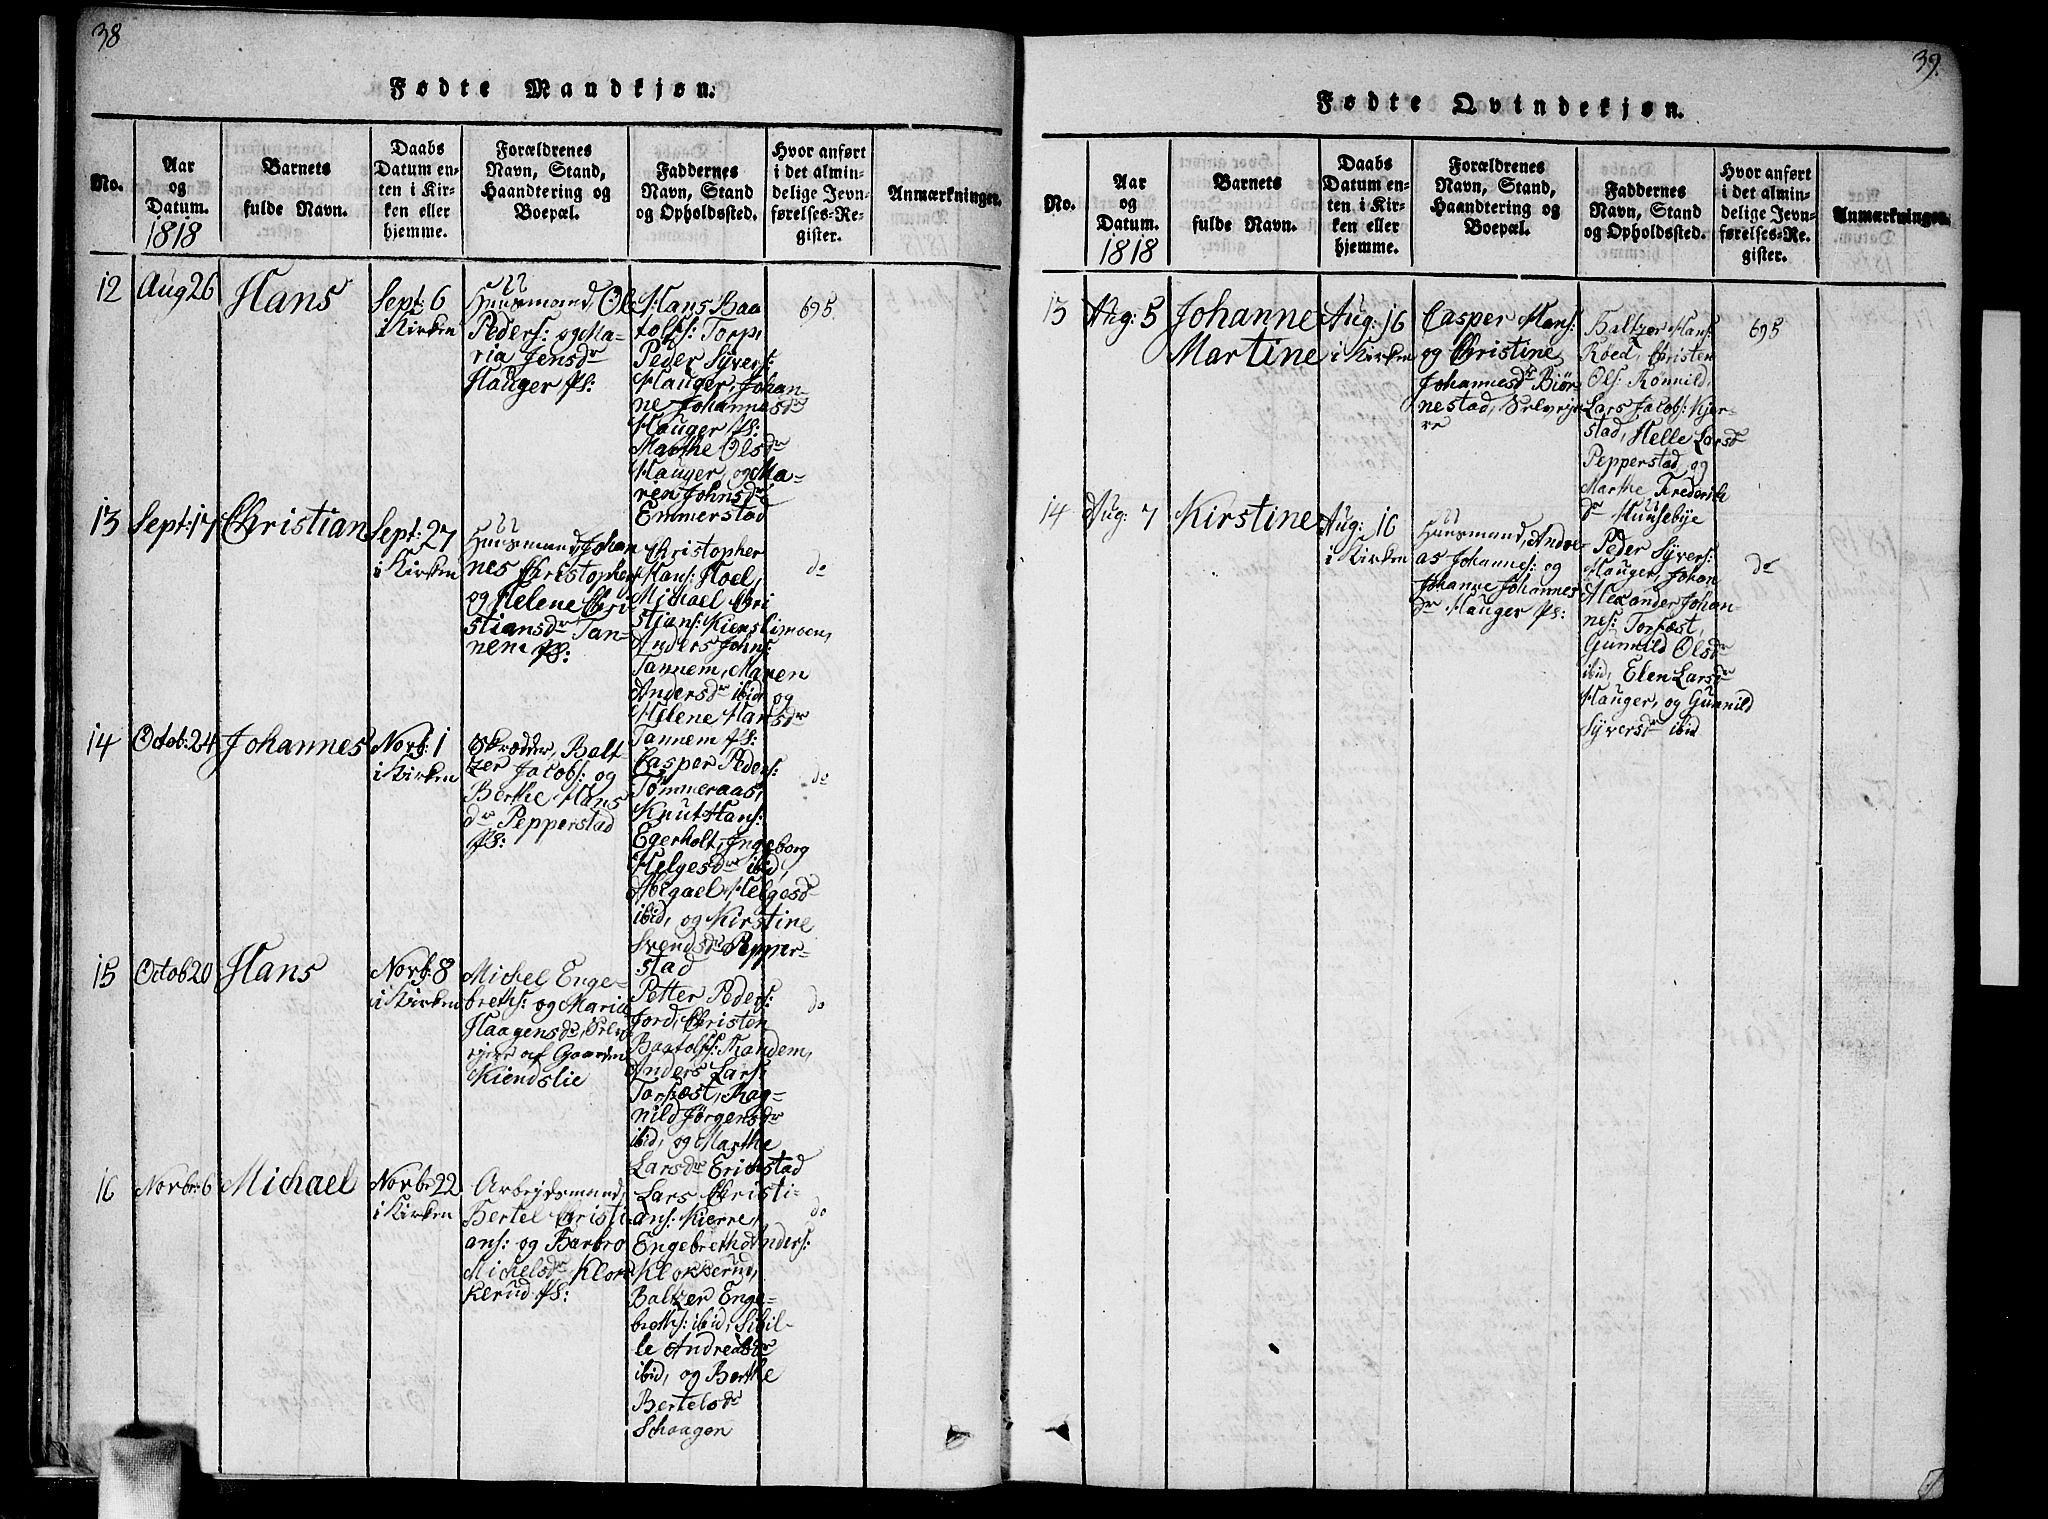 38
Fødte Mandkjøn.
No.
Aar
og
Datum.
1818
Barnets
fulde Navn.
Daabs
Datum en-
ten i Kir-
ken eller
hjemme.
Forældrenes
Navn, Stand,
Haandtering og
Boepæl.
Faddernes
Navn, Stand
og Opholdssted.
Hvor anført
i det almin-
delige Jevn-
førelses-Re-
gister.
Anmærkninger.
12
Aug 26
Hans
Sept: 6
i Kirken
Huusmand Ole
Peders: og Ma-
ria Jensdr
Hauger Ps:
Hans Baa
tolfs: Torp,
Peder Syvers:
Hauger, Johan-
ne Johannesdr
Hauger Ps:
Marthe Olsdr
Hauger, og Ma-
ren Johnsdr
Emmerstad
695
13
Sept: 17
Christian
Sept: 27
i Kirken
Huusmand, Johan
nes Christophers
og Helene Chri-
stiansdr Tan-
nem Ps:
Christopher
Hans: Hoel,
Michael Chri
stians: Kienslimoen,
Anders Johns:
Tannem, Maren
Andersdr ibid og
Helene Hansdr
Tannem Ps:
do
14
Octob: 24
Johannes
Novb: 1
i Kirken
Skrædder, Balt
zer Jacobs: og
Berthe Hans
dr Pepperstad
Ps:
Casper Peders:
Tömmeraas,
Knut Hans:
Egerholt, Ingeborg
Helgesdr ibid,
Abegael Helgesd
ibid, og Kirstine
Svendsdr Pepper-
stad
do
15
Octob 20
Hans
Novb: 8
i Kirken
Michel Enge-
breths: og Maria
Haagensdr, Selv
ejere af Gaarden
Kiendslie
Petter Peders:
Jord, Christen
Baatolfs: Randem,
Anders Lars:
Torfæst, Rag-
nild Jörgensdr
ibid, og Marthe
Larsdr Erichstad
do
16
Novbr: 6
Michael
Novb: 22
i Kirken
Arbeydsmand,
Bertel Christi
ans: og Barbro
Michelsdr Klok
kerud Ps:
Lars Christi-
ans: Kierre,
Engebreth Anders:
Klokkerud,
Baltzer Enge-
breths: ibid, Sibil-
le Andreasdr
ibid, og Berthe
Bertelsdr
Schaugen
do
39.
Fødte Qvindekjøn.
No.
Aar
og
Datum.
1818
Barnets
fulde Navn.
Daabs
Datum en-
ten i Kir-
ken eller
hjemme.
Forældrenes
Navn, Stand,
Haandtering og
Boepæl.
Faddernes
Navn, Stand
og Opholdssted.
Hvor anført
i det almin-
delige Jevn-
førelses-Re-
gister.
Anmærkninger.
13
Aug: 5
Johanne
Martine
Aug: 16
i Kirken
Casper Hans:
og Christine
Johannesdr Biør-
nestad, Selvejе-
re
Baltzer Hans:
Röed, Christen
Ols: Rönnild,
Lars Jacobs: Kjer-
stad, Helle Larsdr
Pepperstad, og
Marthe Frederich
dr Huusebÿe
695
14
Aug: 7
Kirstine
Aug: 16
i Kirken
Huusmand, Andre-
as Johannes: og
Johanne Johannes
dr Hauger Ps:
Peder Syvers:
Hauger, Johan
Alexander Johan-
nes: Torfæst,
Gunnild Olsdr
ibid, Elen Larsdr
Hauger, og Gunnild
Syversdr ibid
do